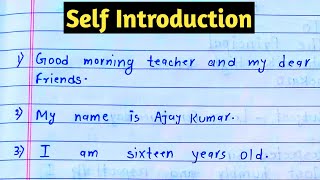 Self Introduction
1) Good morning teacher and my dear
friends.
2) My name is Ajay Kumar.
3) I am sixteen years old.